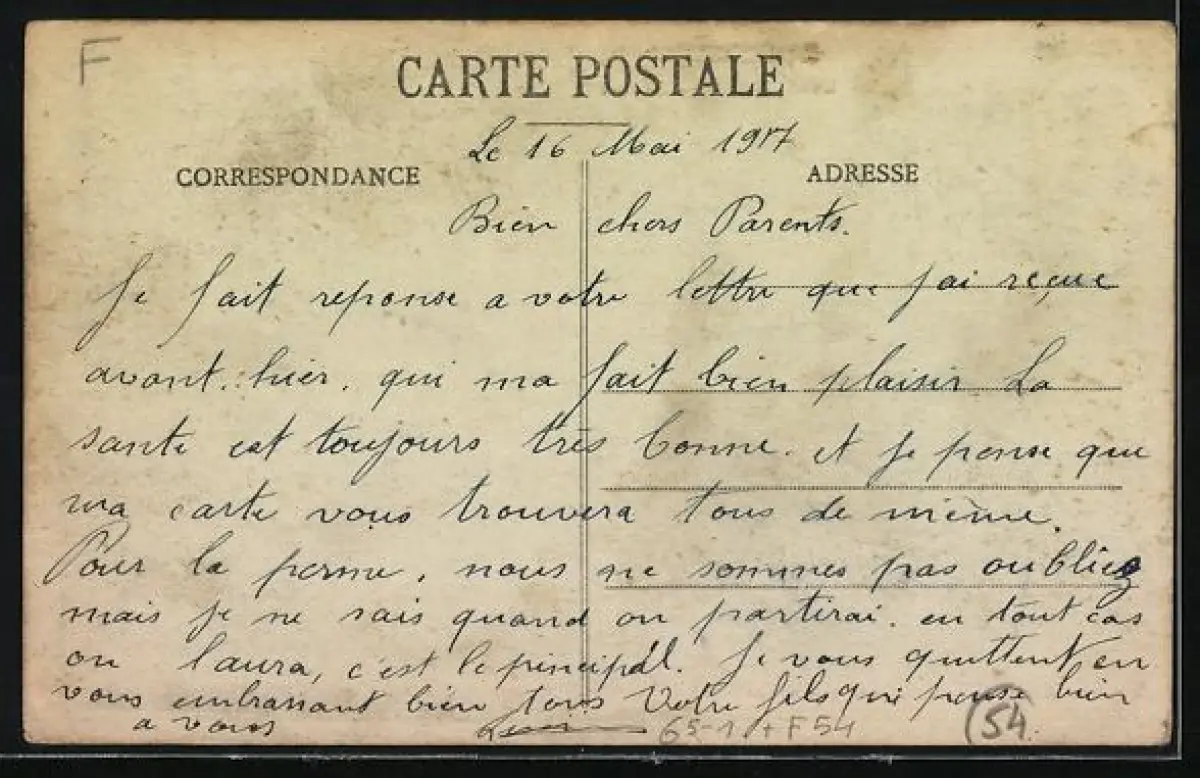 F
CARTE POSTALE
Le 16 Mai 1917
CORRESPONDANCE
ADRESSE
Bien chers Parents.
Je fait reponse a votre lettre que j'ai reçue
avant. hier. qui ma fait bien plaisir La
sante est toujours très bonne. et je pense que
ma carte vous trouvera tous de même.
Pour la perme, nous ne sommes pas oubliez
mais je ne sais quand on partirai. en tout cas
on laura, c'est le principal. Je vous quittent, en
vous embrassant bien tous Votre fils qui pense bien
a vous
65-1 + F54
(54.